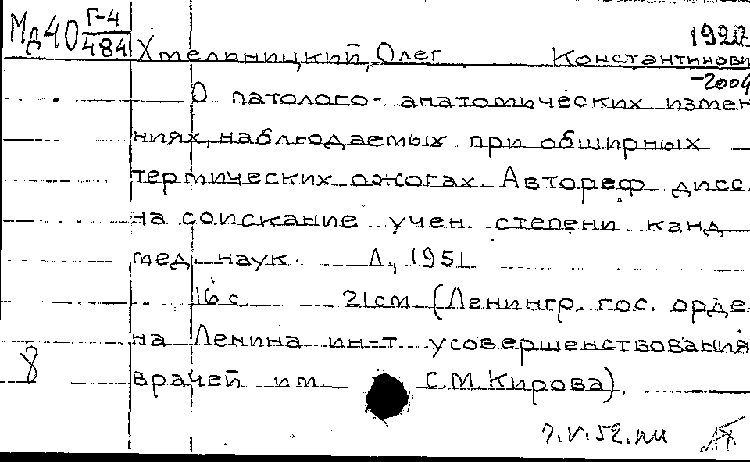 Мд40 Г-4/484
Хмельницкий, Олег Константинови
1920
-2004
О патолого-анатомических измен
ниях, наблюдаемых при обширных
термических ожогах. Автореф. дисс.
на соискание учен. степени канд
мед. наук. Л., 1951
16 с. 21 см (Ленингр. гос. орде
на Ленина ин-т усовершенствования
врачей им С.М. Кирова).
8